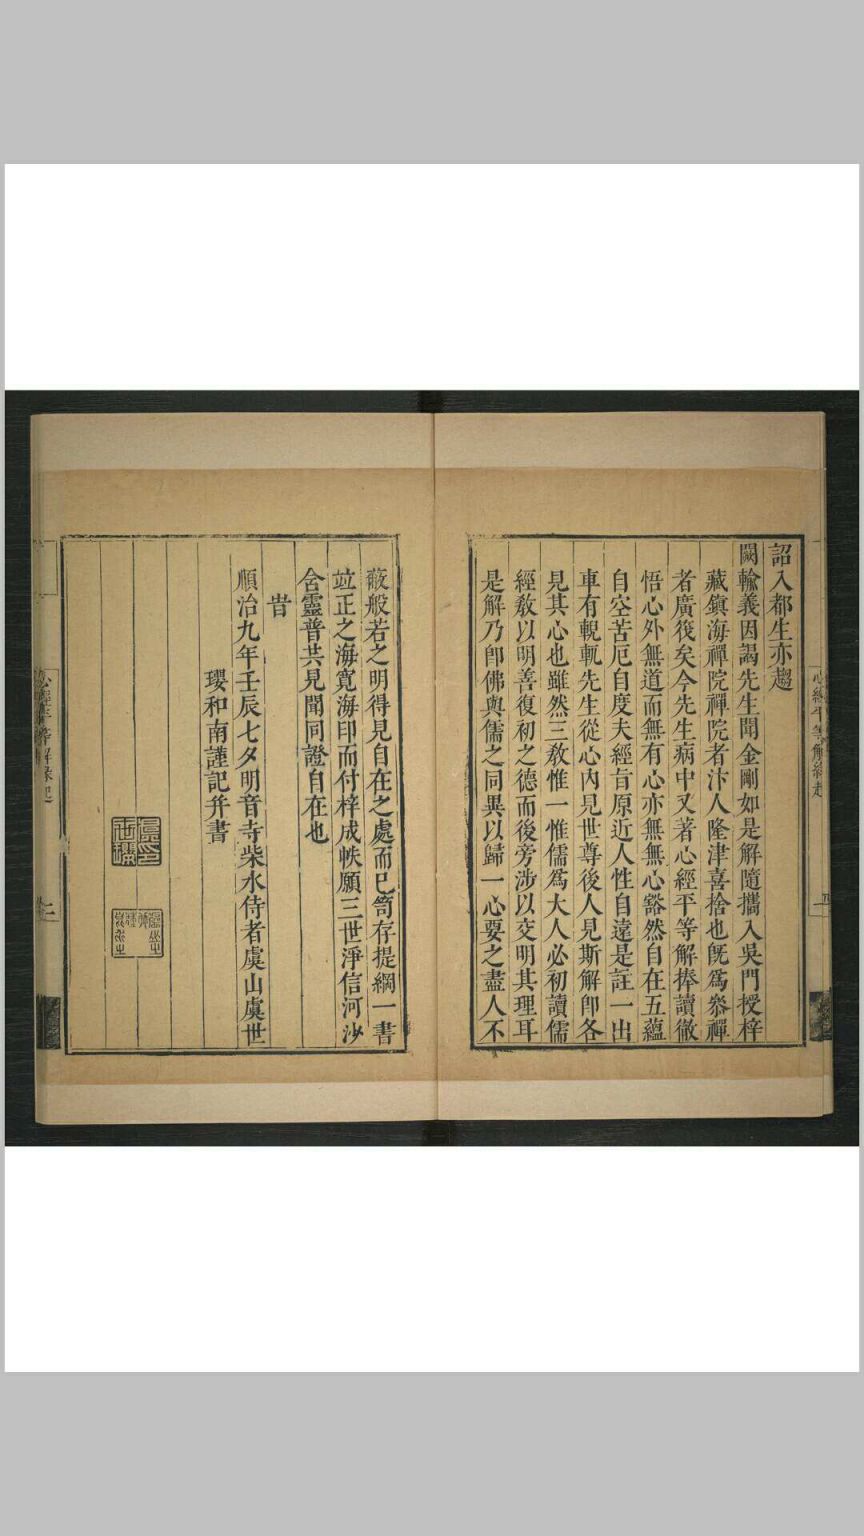 詔入都生亦趨
闕輸義因謁先生聞金剛如是解隨攜入吳門授梓
藏鎮海禪院禪院者汴人隆津喜捨也旣爲叅禪
者廣筏矣今先生病中又著心經平等解捧讀徹
悟心外無道而無有心亦無無心豁然自在五蘊
自空苦厄自度夫經旨原近人性自遠是註一出
車有輗軏先生從心內見世尊後人見斯解卽各
見其心也雖然三敎惟一惟儒爲大人必初讀儒
經敎以明善復初之德而後旁涉以交明其理耳
是解乃卽佛與儒之同異以歸一心要之盡人不
蔽般若之明得見自在之處而已笥存提綱一書
竝正之海寬海印而付梓成帙願三世淨信河沙
含靈普共見聞同證自在也
旹
順治九年壬辰七夕明音寺柴水侍者虞山虞世
瓔和南謹記并書
心經平等解緣起
心經平等解緣起
二